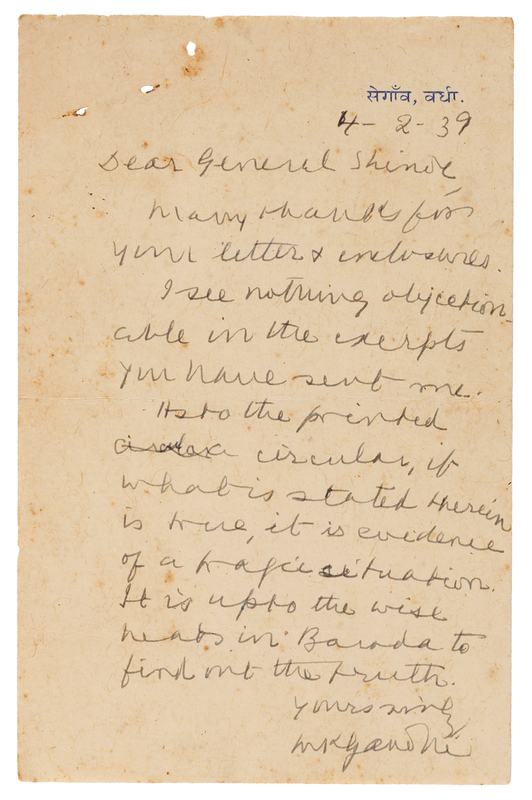 सेगाँव, वर्धा.
4-2-39
Dear General Shinde
Many thanks for
your letter & inclosures.
I see nothing objection-
able in the exerpts
you have sent me.
As to the printed
circular, if
what is stated therein
is true, it is evidence
of a tragic situation.
It is upto the wise
heads in Baroda to
find out the truth.
yours sincly
MKGandhi